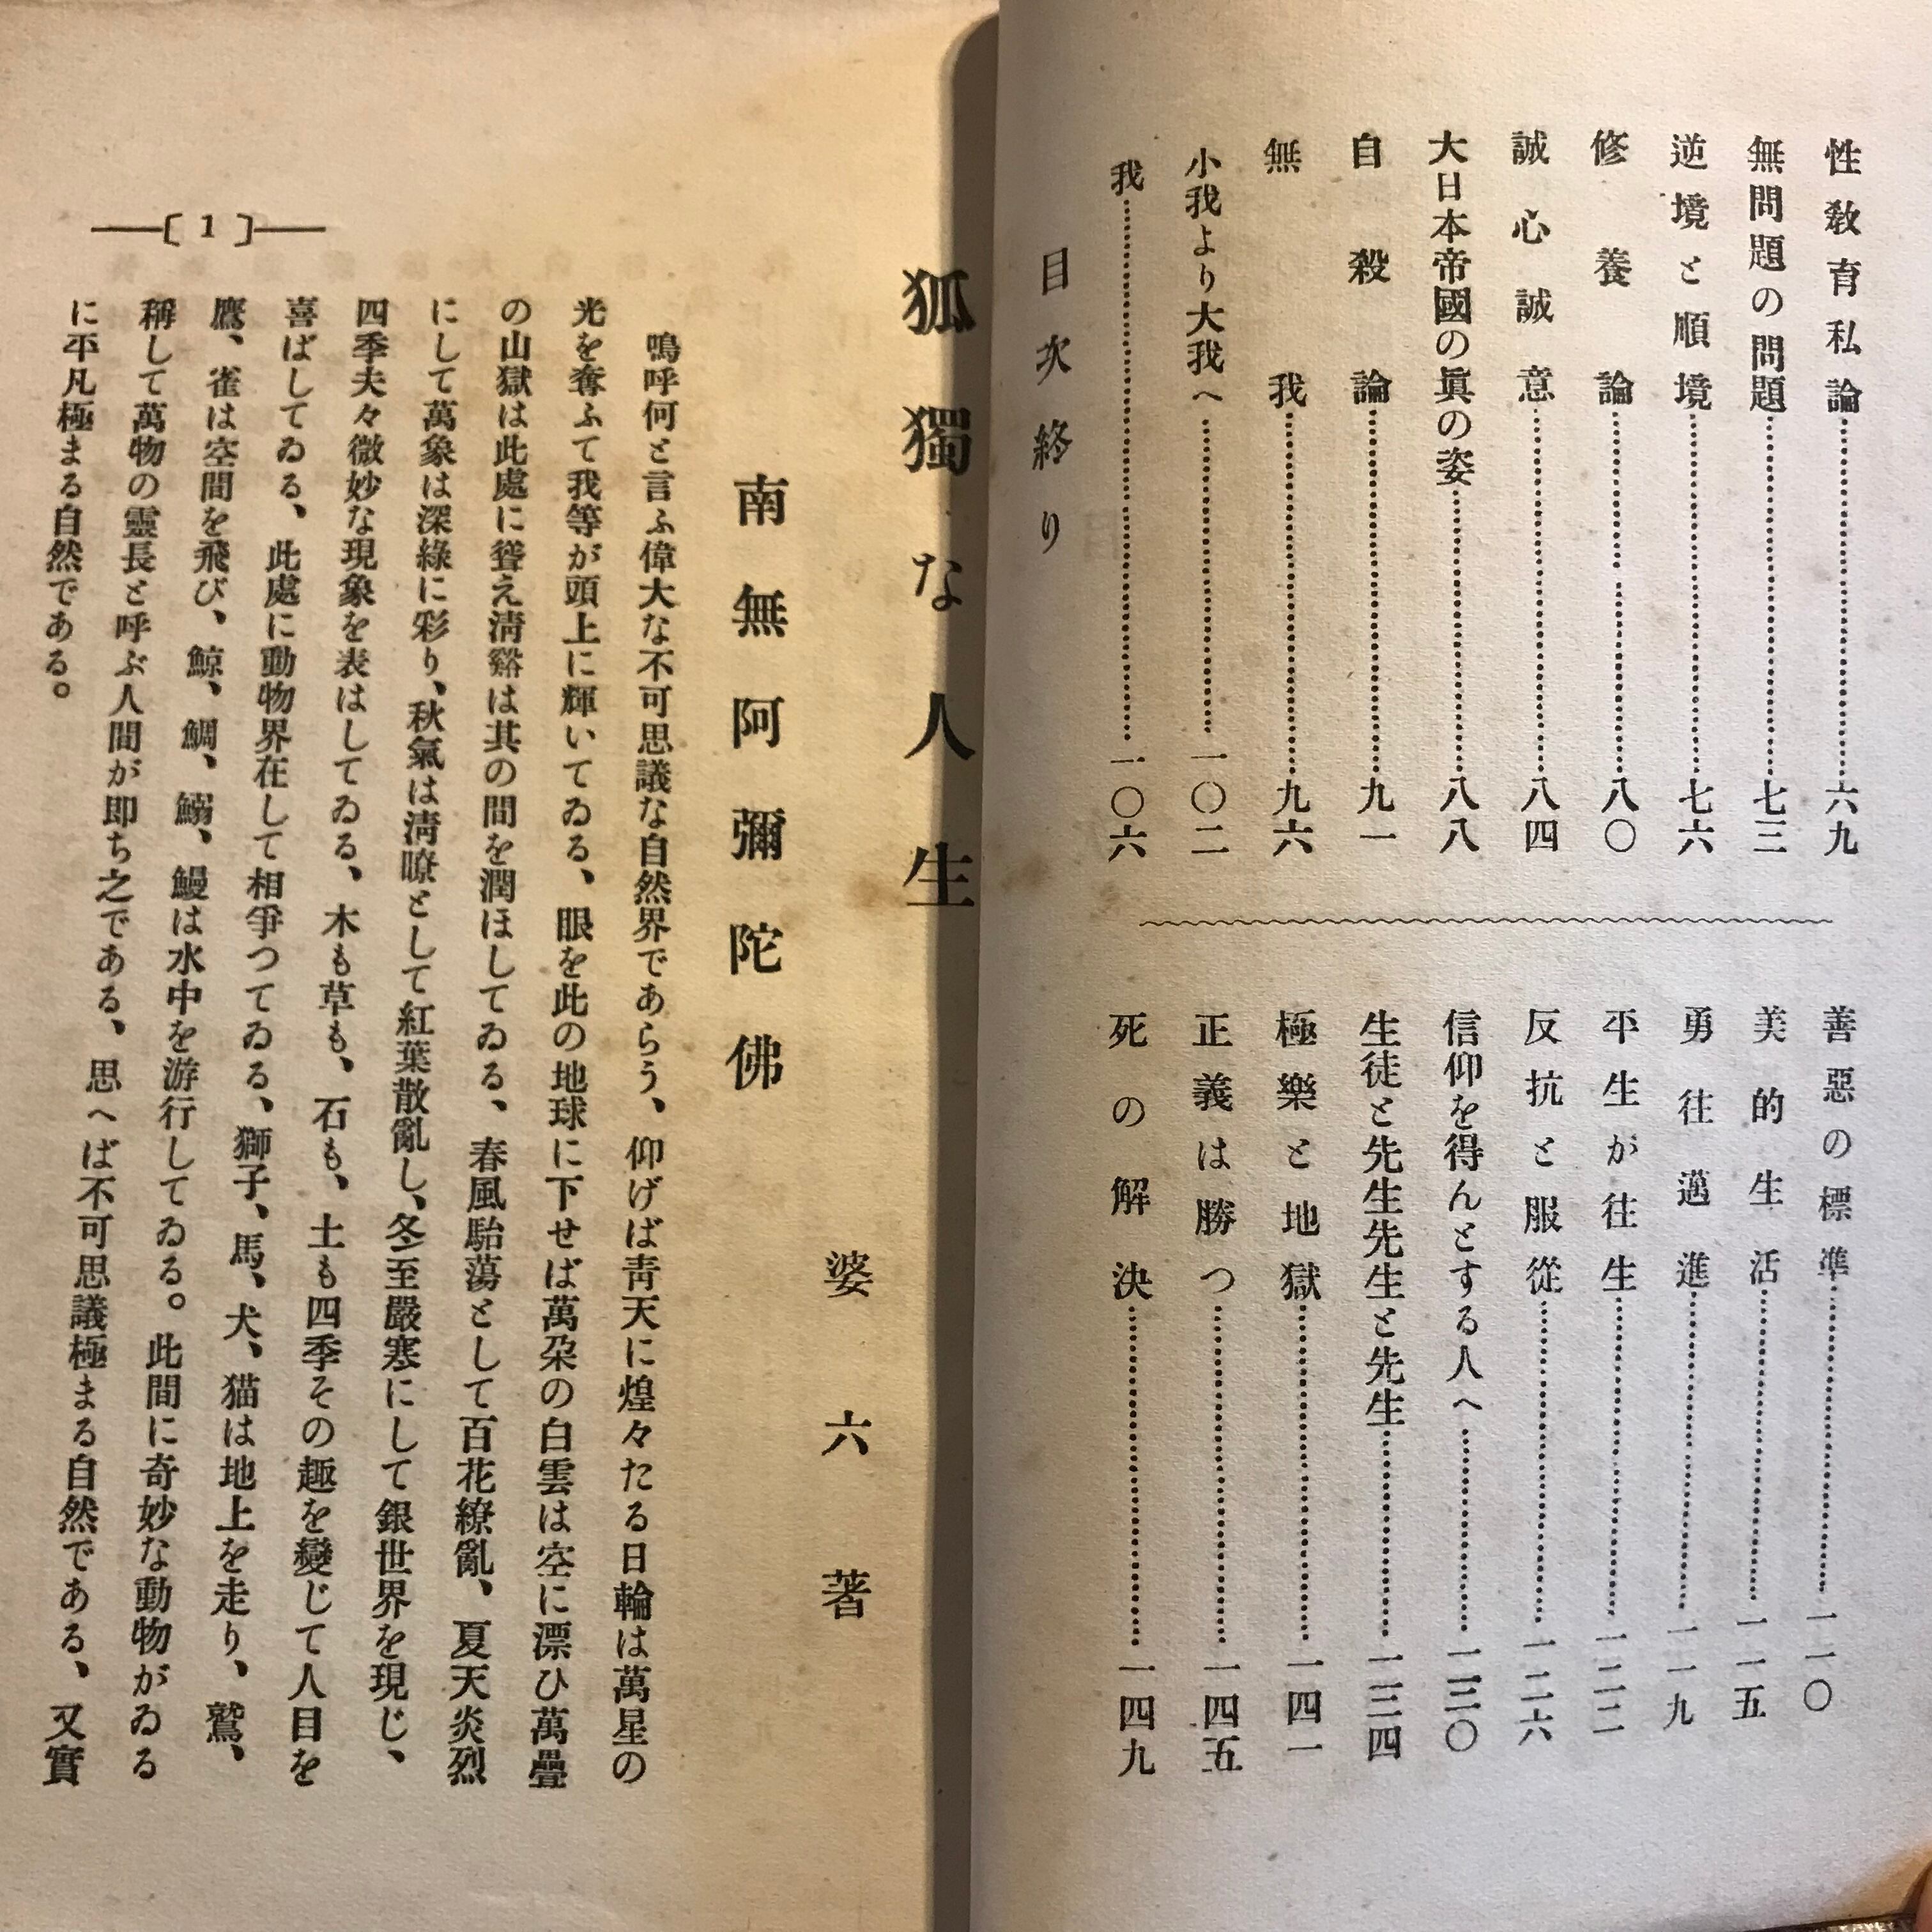 性教育私論……六九
無問題の問題……七三
逆境と順境……七六
修養論……八〇
誠心誠意……八四
大日本帝國の眞の姿……八八
自殺論……九一
無我……九六
小我より大我へ……一〇二
我……一〇六
善惡の標準……一一〇
美的生活……一一五
勇往邁進……一一九
平生が往生……一二二
反抗と服從……一二六
信仰を得んとする人へ……一三〇
生徒と先生先生と先生……一三四
極樂と地獄……一四一
正義は勝つ……一四五
死の解決……一四九
目次終り
狐獨な人生
婆六著
南無阿彌陀佛
嗚呼何と言ふ偉大な不可思議な自然界であらう、仰げば靑天に煌々たる日輪は萬星の
光を奪ふて我等が頭上に輝いてゐる、眼を此の地球に下せば萬朶の白雲は空に漂ひ萬疊
の山獄は此處に聳え淸谿は其の間を潤ほしてゐる、春風駘蕩として百花繚亂、夏天炎烈
にして萬象は深綠に彩り、秋氣は淸暸として紅葉散亂し、冬至嚴寒にして銀世界を現じ、
四季夫々微妙な現象を表はしてゐる、木も草も、石も、土も四季その趣を變じて人目を
喜ばしてゐる、此處に動物界在して相爭つてゐる、獅子、馬、犬、猫は地上を走り、鷲、
鷹、雀は空間を飛び、鯨、鯛、鰯、鰻は水中を游行してゐる。此間に奇妙な動物がゐる
稱して萬物の靈長と呼ぶ人間が即ち之である、思へば不可思議極まる自然である、又實
に平凡極まる自然である。
〔1〕